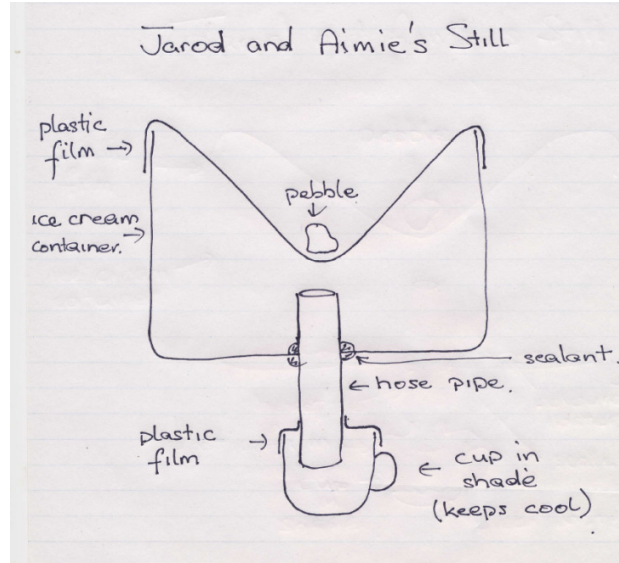 Jarod and Aimie's Still
plastic
film
pebble
ice cream
container.
sealant.
hose pipe.
plastic
film
cup in
shade
(keeps cool)